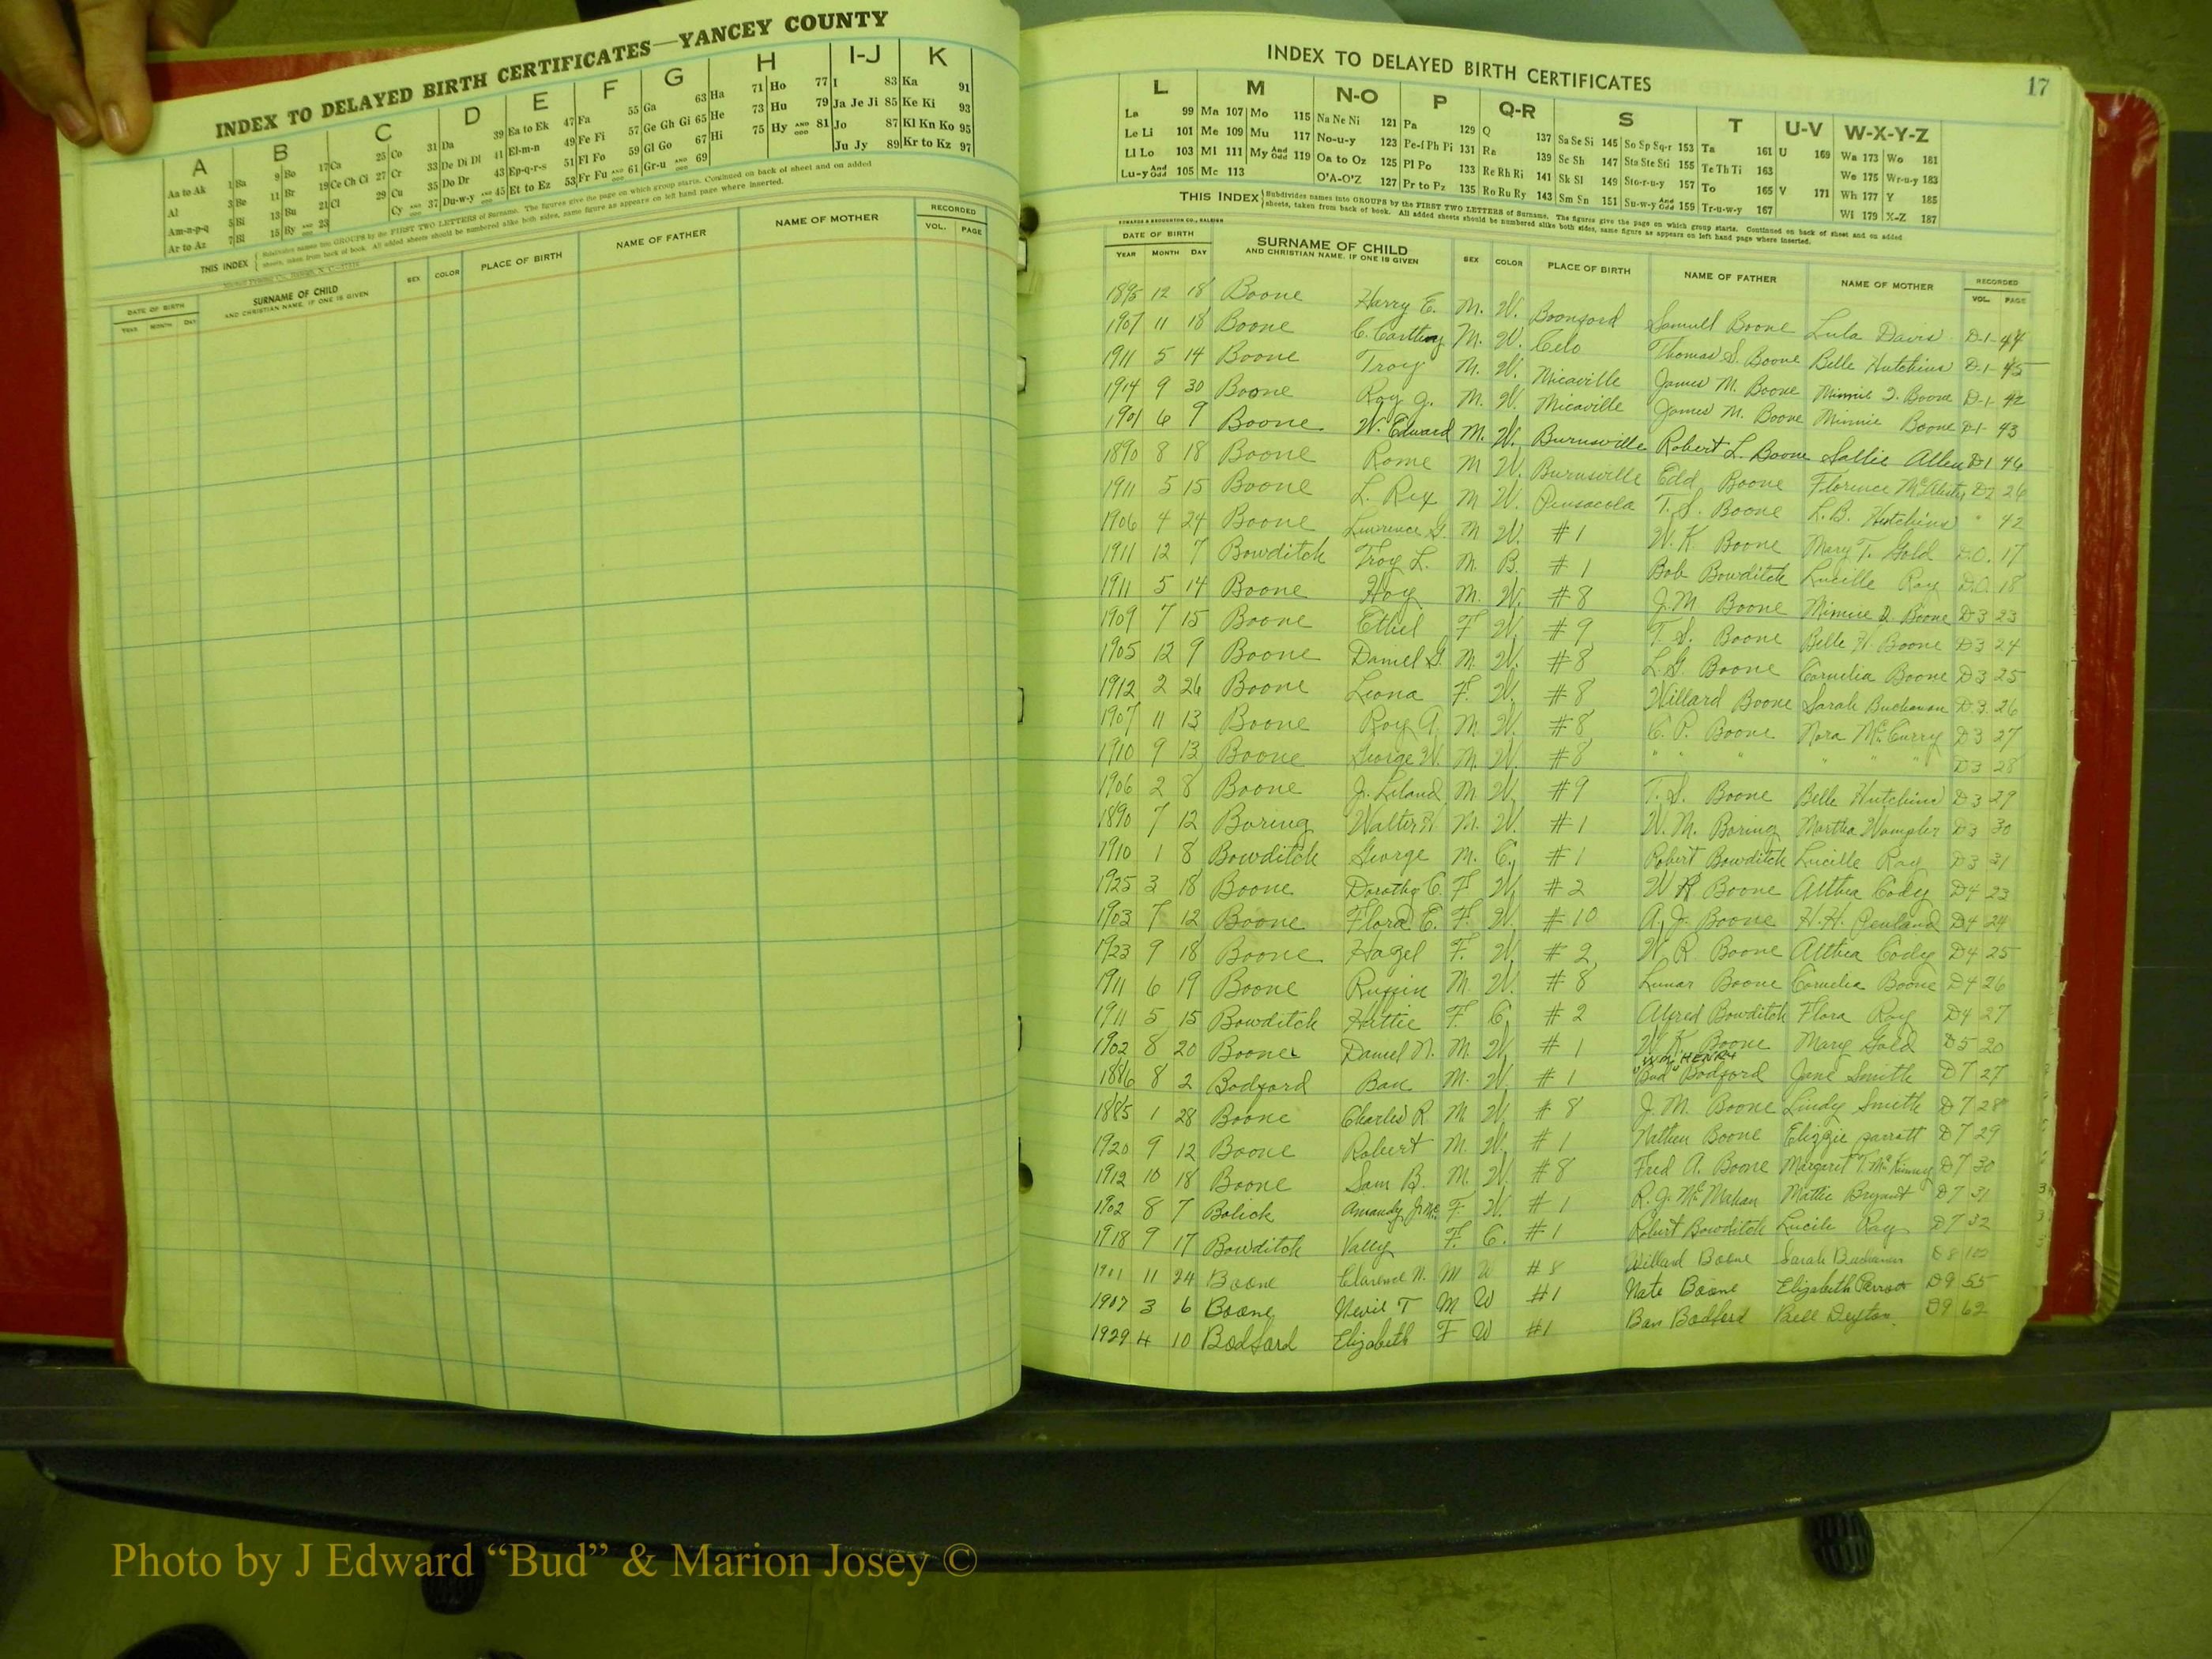 INDEX TO DELAYED BIRTH CERTIFICATES—YANCEY COUNTY
A B C D E F G H I-J K
Aa to Ak 1 Ba 9 Bo 17 Ca 25 Co 31 Da 39 Ea to Ek 47 Fa 55 Ga 63 Ha 71 Ho 77 I 83 Ka 91
Al 3 Be 11 Br 19 Ce Ch Ci 27 Cr 33 De Di Dl 41 El-m-n 49 Fe Fi 57 Ge Gh Gi 65 He 73 Hu 79 Ja Je Ji 85 Ke Ki 93
Am-n-p-q 5 Bi 13 Bu 21 Cl 29 Cu 35 Do Dr 43 Ep-q-r-s 51 Fl Fo 59 Gl Go 67 Hi 75 Hy AND ODD 81 Jo 87 Kl Kn Ko 95
Ar to Az 7 Bl 15 By AND ODD 23 Cy AND ODD 37 Du-w-y AND ODD 45 Et to Ez 53 Fr Fu AND ODD 61 Gr-u AND ODD 69 Ju Jy 89 Kr to Kz 97
THIS INDEX Subdivides names into GROUPS by the FIRST TWO LETTERS of Surname. The figures give the page on which group starts. Continued on back of sheet and on added
sheets, taken from back of book. All added sheets should be numbered alike both sides, same figure as appears on left hand page where inserted.
DATE OF BIRTH SURNAME OF CHILD SEX COLOR PLACE OF BIRTH NAME OF FATHER NAME OF MOTHER RECORDED
YEAR MONTH DAY AND CHRISTIAN NAME, IF ONE IS GIVEN VOL. PAGE
INDEX TO DELAYED BIRTH CERTIFICATES 17
L M N-O P Q-R S T U-V W-X-Y-Z
La 99 Ma 107 Mo 115 Na Ne Ni 121 Pa 129 Q 137 Sa Se Si 145 So Sp Sq-r 153 Ta 161 U 169 Wa 173 Wo 181
Le Li 101 Me 109 Mu 117 No-u-y 123 Pe-f Ph Pi 131 Ra 139 Sc Sh 147 Sta Ste Sti 155 Te Th Ti 163 We 175 Wr-u-y 183
Ll Lo 103 Mi 111 My And Odd 119 Oa to Oz 125 Pl Po 133 Re Rh Ri 141 Sk Sl 149 Sto-r-u-y 157 To 165 V 171 Wh 177 Y 185
Lu-y And Odd 105 Mc 113 O'A-O'Z 127 Pr to Pz 135 Ro Ru Ry 143 Sm Sn 151 Su-w-y And Odd 159 Tr-u-w-y 167 Wi 179 X-Z 187
THIS INDEX Subdivides names into GROUPS by the FIRST TWO LETTERS of Surname. The figures give the page on which group starts. Continued on back of sheet and on added
sheets, taken from back of book. All added sheets should be numbered alike both sides, same figure as appears on left hand page where inserted.
EDWARDS & BROUGHTON CO., RALEIGH
DATE OF BIRTH SURNAME OF CHILD SEX COLOR PLACE OF BIRTH NAME OF FATHER NAME OF MOTHER RECORDED
YEAR MONTH DAY AND CHRISTIAN NAME, IF ONE IS GIVEN VOL. PAGE
1895 12 18 Boone Harry E. M. W. Boonford Samuel Boone Lula Davis D-1- 44
1907 11 18 Boone C. M. W. Celo Thomas S. Boone Belle Hutchins D-1- 45
1911 5 14 Boone Troy M. W. Micaville James M. Boone Minnie D. Boone D-1- 42
1914 9 30 Boone Roy G. M. W. Micaville James M. Boone Minnie Boone D-1- 43
1901 6 9 Boone W. Edward M. W. Burnsville Robert L. Boone Sallie Allen D1 46
1890 8 18 Boone Rome M W. Burnsville Edd Boone Florence D2 26
1911 5 15 Boone L. Rex M W. Pensacola T. S. Boone L. B. Hutchins " 42
1906 4 24 Boone Lawrence G. M W. #1 W. K. Boone Mary T. Gold D.O. 17
1911 12 7 Bowditch Troy L. M. B. #1 Bob Bowditch Lucille Ray D.O. 18
1911 5 14 Boone Hoy M. W. #8 J. M Boone Minnie D. Boone D3 23
1909 7 15 Boone Ethel F W. #9 T. S. Boone Belle H. Boone D3 24
1905 12 9 Boone Daniel G. M. W. #8 L. G. Boone Cornelia Boone D3 25
1912 2 26 Boone Leona F. W. #8 Willard Boone Sarah Buchanan D3 26
1907 11 13 Boone Roy A. M W. #8 C. P. Boone Nora McCurry D3 27
1910 9 13 Boone George W. M. W. #8 " " " " " " D3 28
1906 2 8 Boone J. Leland M. W. #9 T. S. Boone Belle Hutchins D3 29
1890 7 12 Boring Walter M. W. #1 W. M. Boring Martha Wampler D3 30
1910 1 8 Bowditch George M. C. #1 Robert Bowditch Lucille Ray D3 31
1925 3 18 Boone Dorothy C. F W. #2 W R Boone Althea Cody D4 23
1903 7 12 Boone Flora E. F. W. #10 A. J. Boone H. H. Penland D4 24
1923 9 18 Boone Hazel F. W. #2 W R Boone Althea Cody D4 25
1911 6 19 Boone Ruffin M. W. #8 Lunar Boone Cornelia Boone D4 26
1911 5 15 Bowditch Hattie F. C. #2 Alfred Bowditch Flora Ray D4 27
1902 8 20 Boone Daniel N. M. W. #1 W. K. Boone Mary Gold D5 20
WM. HENRY
1886 8 2 Bodford Ban M. W. #1 "Bud" Bodford Jane Smith D7 27
1885 1 28 Boone Charles R M W. #8 J. M. Boone Lindy Smith D7 28
1920 9 12 Boone Robert M. W. #1 Nathen Boone Elizzie Parrott D7 29
1912 10 18 Boone Sam B. M. W. #8 Fred A. Boone Margaret T. McKinney D7 30
1902 8 7 Bolick Amandy F. W. #1 R. J. McMahan Mattie Bryant D7 31
1918 9 17 Bowditch Vally F. C. #1 Robert Bowditch Lucile Ray D7 32
1901 11 24 Boone Clarence N. M W #8 Willard Boone Sarah Buchanan D8 102
1907 3 6 Boone Nevil T M W #1 Nate Boone Elizabeth Parrott D9 55
1929 4 10 Bodford Elizabeth F W #1 Ban Bodford Bell Deyton D9 62
Photo by J Edward “Bud” & Marion Josey ©